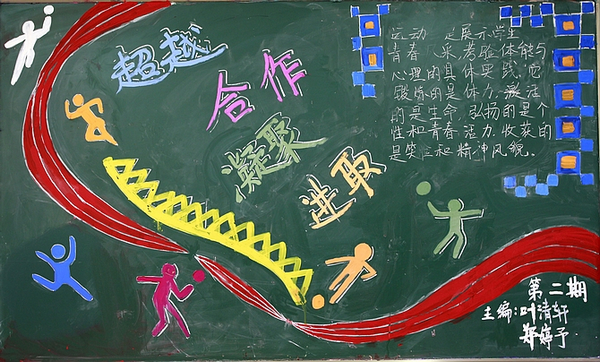 超越
合作
凝聚
进取
运动 是展示学生
青春 采,考验体能与
心理的具体实践。它
锻炼的是体力,激活
的是生命,弘扬的是个
性和青春活力,收获的
是笑 和精神风貌。
第二期
主编:叶清轩
郑婷予